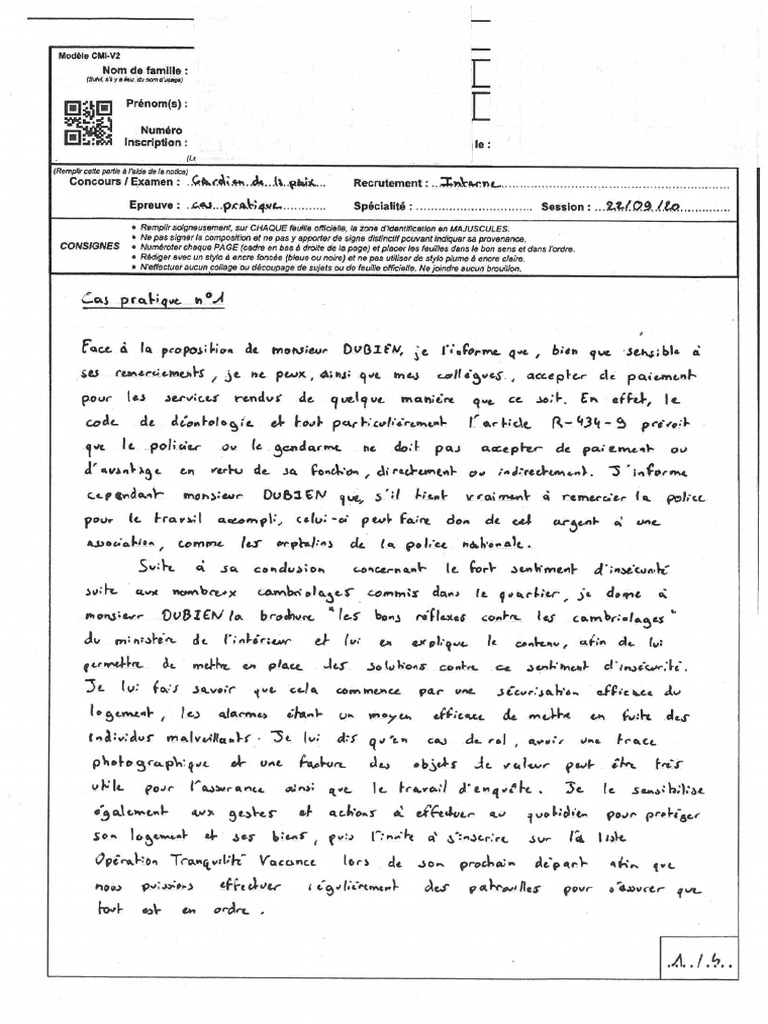 Modèle CMI-V2
Nom de famille :
(Suivi, s'il y a lieu, du nom d'usage)
Prénom(s) :
Numéro
Inscription :
le :
(Remplir cette partie à l'aide de la notice)
Concours / Examen : Gardien de la paix Recrutement : Interne
Epreuve : cas pratique Spécialité : Session : 22/09/20
CONSIGNES
• Remplir soigneusement, sur CHAQUE feuille officielle, la zone d'identification en MAJUSCULES.
• Ne pas signer la composition et ne pas y apporter de signe distinctif pouvant indiquer sa provenance.
• Numéroter chaque PAGE (cadre en bas à droite de la page) et placer les feuilles dans le bon sens et dans l'ordre.
• Rédiger avec un stylo à encre foncée (bleue ou noire) et ne pas utiliser de stylo plume à encre claire.
• N'effectuer aucun collage ou découpage de sujets ou de feuille officielle. Ne joindre aucun brouillon.
Cas pratique n°1
Face à la proposition de monsieur DUBIEN, je l'informe que, bien que sensible à
ses remerciements, je ne peux, ainsi que mes collègues, accepter de paiement
pour les services rendus de quelque manière que ce soit. En effet, le
code de déontologie et tout particulièrement l'article R-434-9 prévoit
que le policier ou le gendarme ne doit pas accepter de paiement ou
d'avantage en vertu de sa fonction, directement ou indirectement. J'informe
cependant monsieur DUBIEN que, s'il tient vraiment à remercier la police
pour le travail accompli, celui-ci peut faire don de cet argent à une
association, comme les orphelins de la police nationale.
Suite à sa conclusion concernant le fort sentiment d'insécurité
suite aux nombreux cambriolages commis dans le quartier, je donne à
monsieur DUBIEN la brochure "les bons réflexes contre les cambriolages"
du ministère de l'intérieur et lui en explique le contenu, afin de lui
permettre de mettre en place des solutions contre ce sentiment d'insécurité.
Je lui fais savoir que cela commence par une sécurisation efficace du
logement, les alarmes étant un moyen efficace de mettre en fuite des
individus malveillants. Je lui dis qu'en cas de vol, avoir une trace
photographique et une facture des objets de valeur peut être très
utile pour l'assurance ainsi que le travail d'enquête. Je le sensibilise
également aux gestes et actions à effectuer au quotidien pour protéger
son logement et ses biens, puis l'invite à s'inscrire sur la liste
Opération Tranquilité Vacance lors de son prochain départ afin que
nous puissions effectuer régulièrement des patrouilles pour s'assurer que
tout est en ordre.
1 / 4